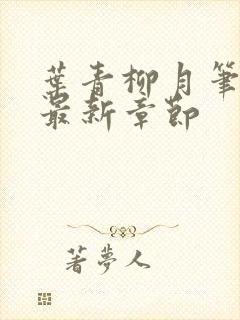 葉青柳月筆
最新章節
著夢人